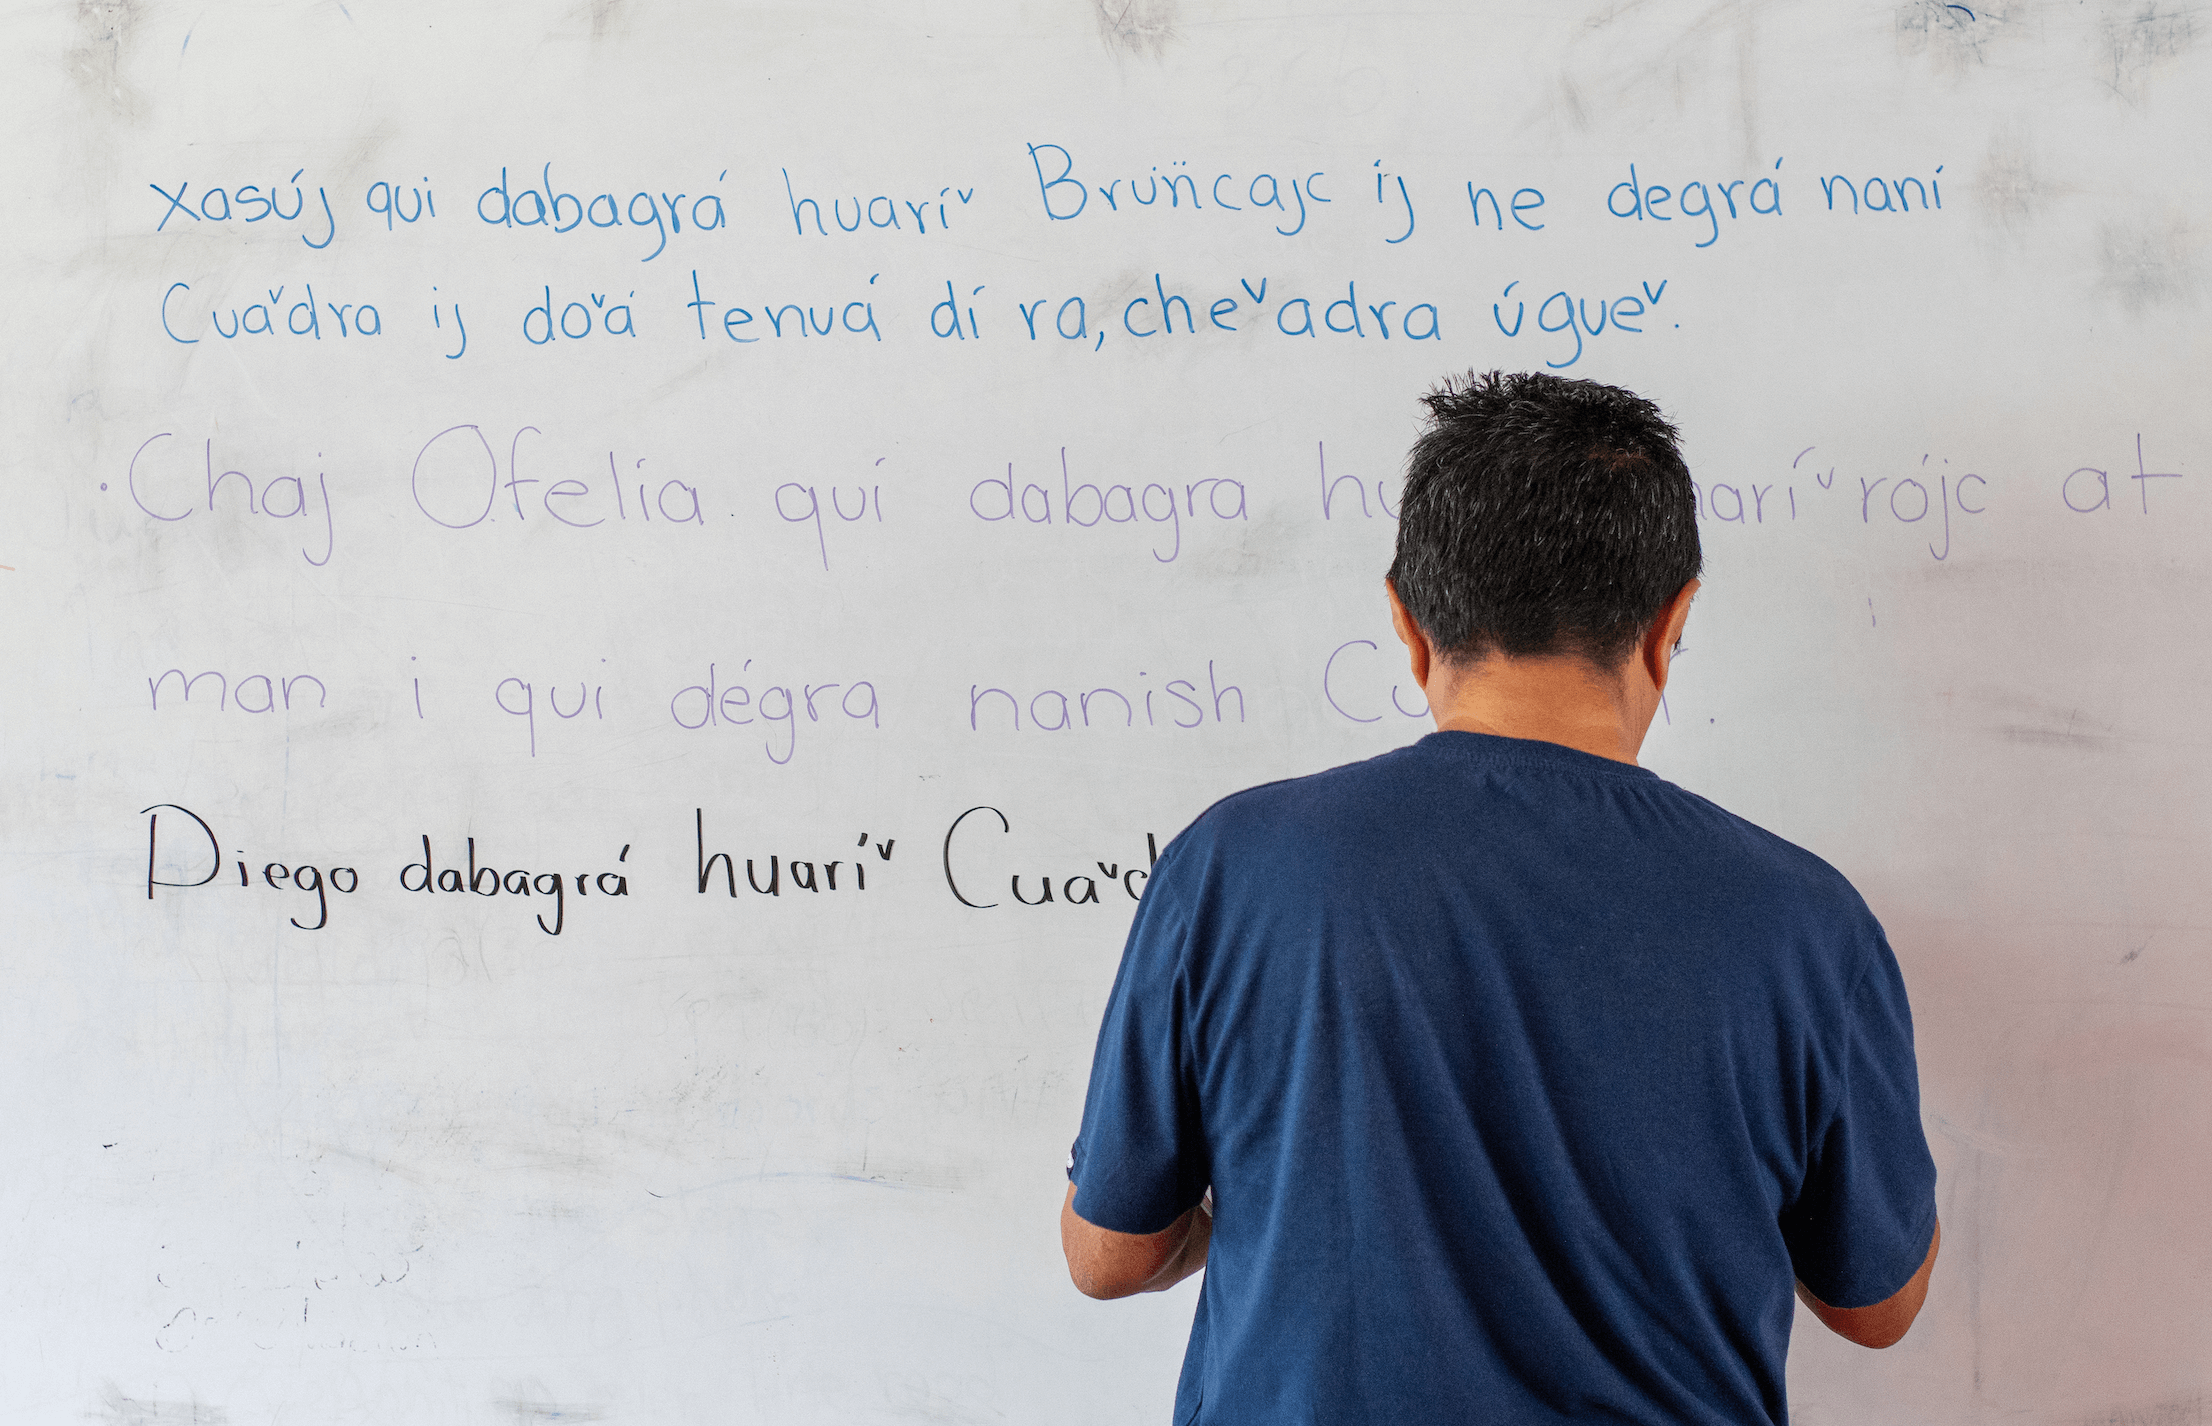 xasúj qui dabagrá huaríˇ Brüncajc ij ne degrá naní
Cuaˇdra ij doˇá tenuá dí ra, cheˇadra úgueˇ.
Chaj Ofelia qui dabagra rójc at
man i qui dégra nanish
Diego dabagrá huaríˇ